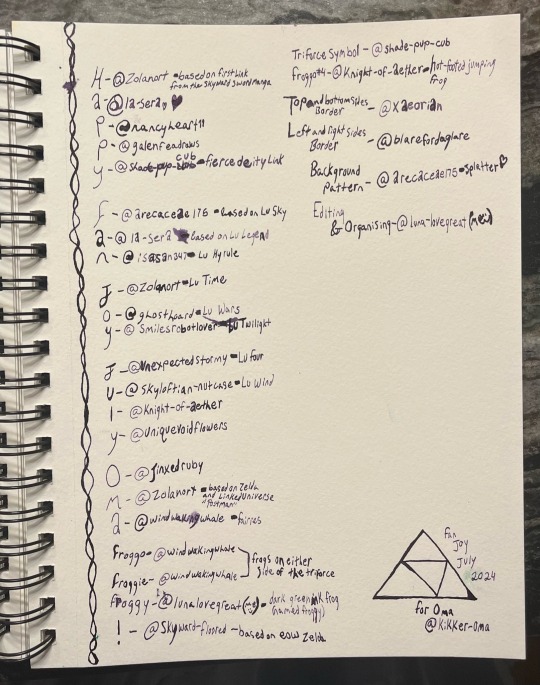 H - @Zolanort - based on first Link
from the Skyward Sword manga
a - @la-sera
P - @nancyheart11
P - @galenfeadraws
y - @shade-pup-cub - fierce deity Link
f - @arecaceae175 - based on LU Sky
a - @la-sera - based on LU Legend
n - @isasan347 - LU Hyrule
J - @Zolanort - LU Time
o - @ghosthoard - LU Wars
y - @smilesrobotlover - LU Twilight
J - @unexpectedstormy - LU four
u - @skyloftian-nutcase - LU Wind
l - @Knight-of-aether
y - @uniquevoidflowers
O - @jinxedruby
m - @Zolanort - based on Zelda
and Linked Universe
"Postman"
a - @windwakingwhale - fairies
Froggo - @windwakingwhale
Froggie - @windwakingwhale
frogs on either
side of the triforce
Froggy - @lunalovegreat (me) - dark green ink frog
(named froggy)
! - @Skyward-floored - based on EOW Zelda
Triforce Symbol - @shade-pup-cub
froggo#4 - @Knight-of-aether - hot-footed jumping
frog
Top and bottom sides
Border - @xaeorian
Left and right sides
Border - @blarefordaglare
Background
Pattern - @arecaceae175 - splatter
Editing
& Organising - @luna-lovegreat (me)
Fan
Joy
July
2024
for Oma
@Kikker-oma